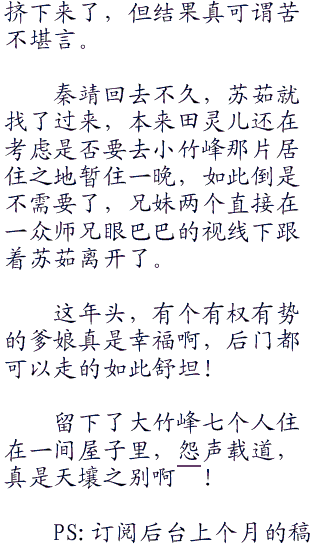 挤下来了，但结果真可谓苦
不堪言。
秦靖回去不久，苏茹就
找了过来，本来田灵儿还在
考虑是否要去小竹峰那片居
住之地暂住一晚，如此倒是
不需要了，兄妹两个直接在
一众师兄眼巴巴的视线下跟
着苏茹离开了。
这年头，有个有权有势
的爹娘真是幸福啊，后门都
可以走的如此舒坦！
留下了大竹峰七个人住
在一间屋子里，怨声载道，
真是天壤之别啊！
PS:订阅后台上个月的稿